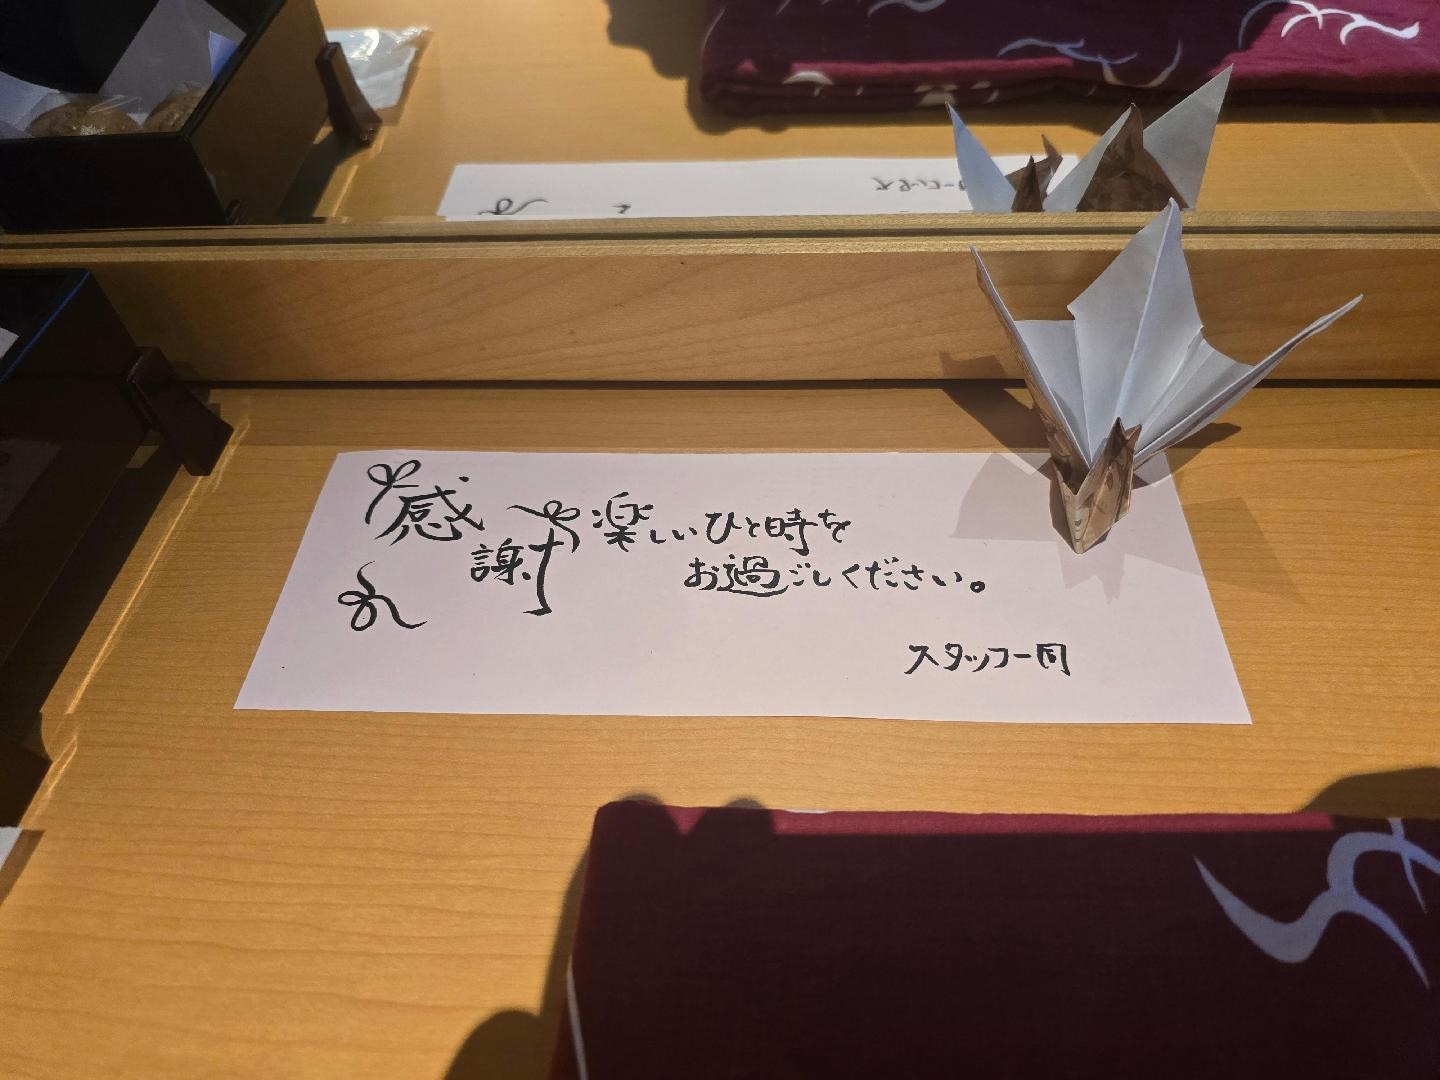 感謝
楽しいひと時を
お過ごしください。
スタッフ一同
スタッフ一